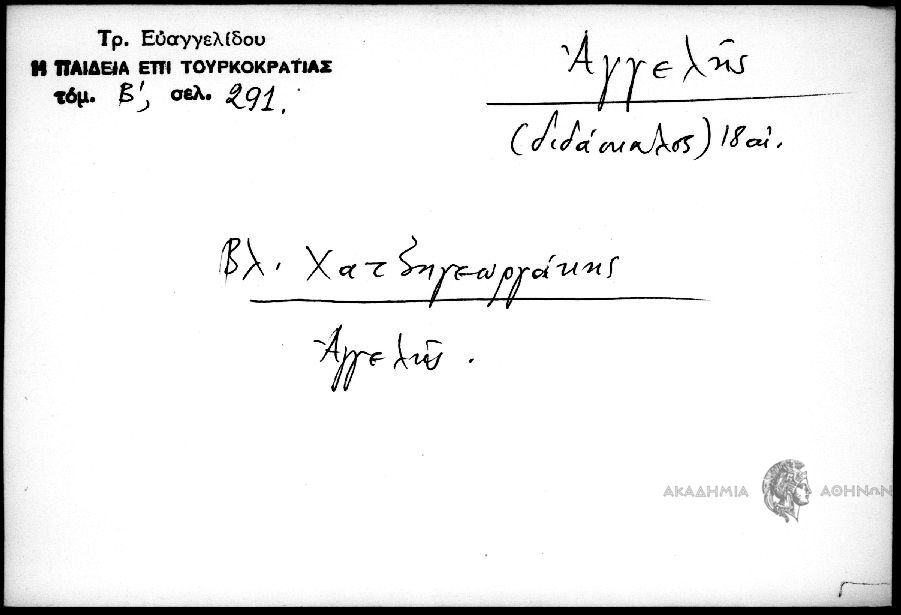 Τρ. Εὐαγγελίδου
Η ΠΑΙΔΕΙΑ ΕΠΙ ΤΟΥΡΚΟΚΡΑΤΙΑΣ
τόμ. Β', σελ. 291.
Ἀγγελῆς
(διδάσκαλος) 18 αἰ.
Βλ. Χατζηγεωργάκης
Ἀγγελῆς.
ΑΚΑΔΗΜΙΑ ΑΘΗΝΩΝ